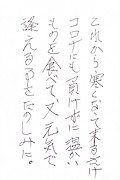 これから寒くなって来るけど
コロナにも負けずに温かい
ものを食べて又元気で
逢える日をたのしみに。